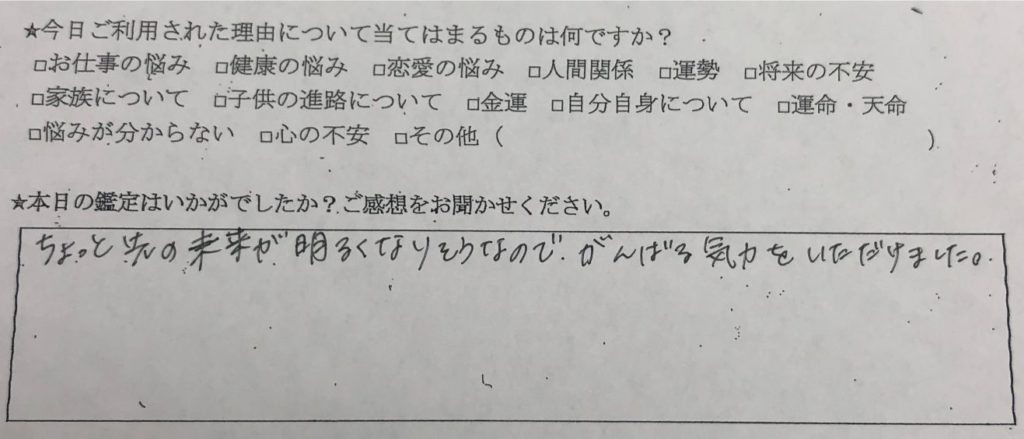 ★今日ご利用された理由について当てはまるものは何ですか？
□お仕事の悩み □健康の悩み □恋愛の悩み □人間関係 □運勢 □将来の不安
□家族について □子供の進路について □金運 □自分自身について □運命・天命
□悩みが分からない □心の不安 □その他（ ）
★本日の鑑定はいかがでしたか？ご感想をお聞かせください。
ちょっと先の未来が明るくなりそうなので、がんばる気力をいただけました。